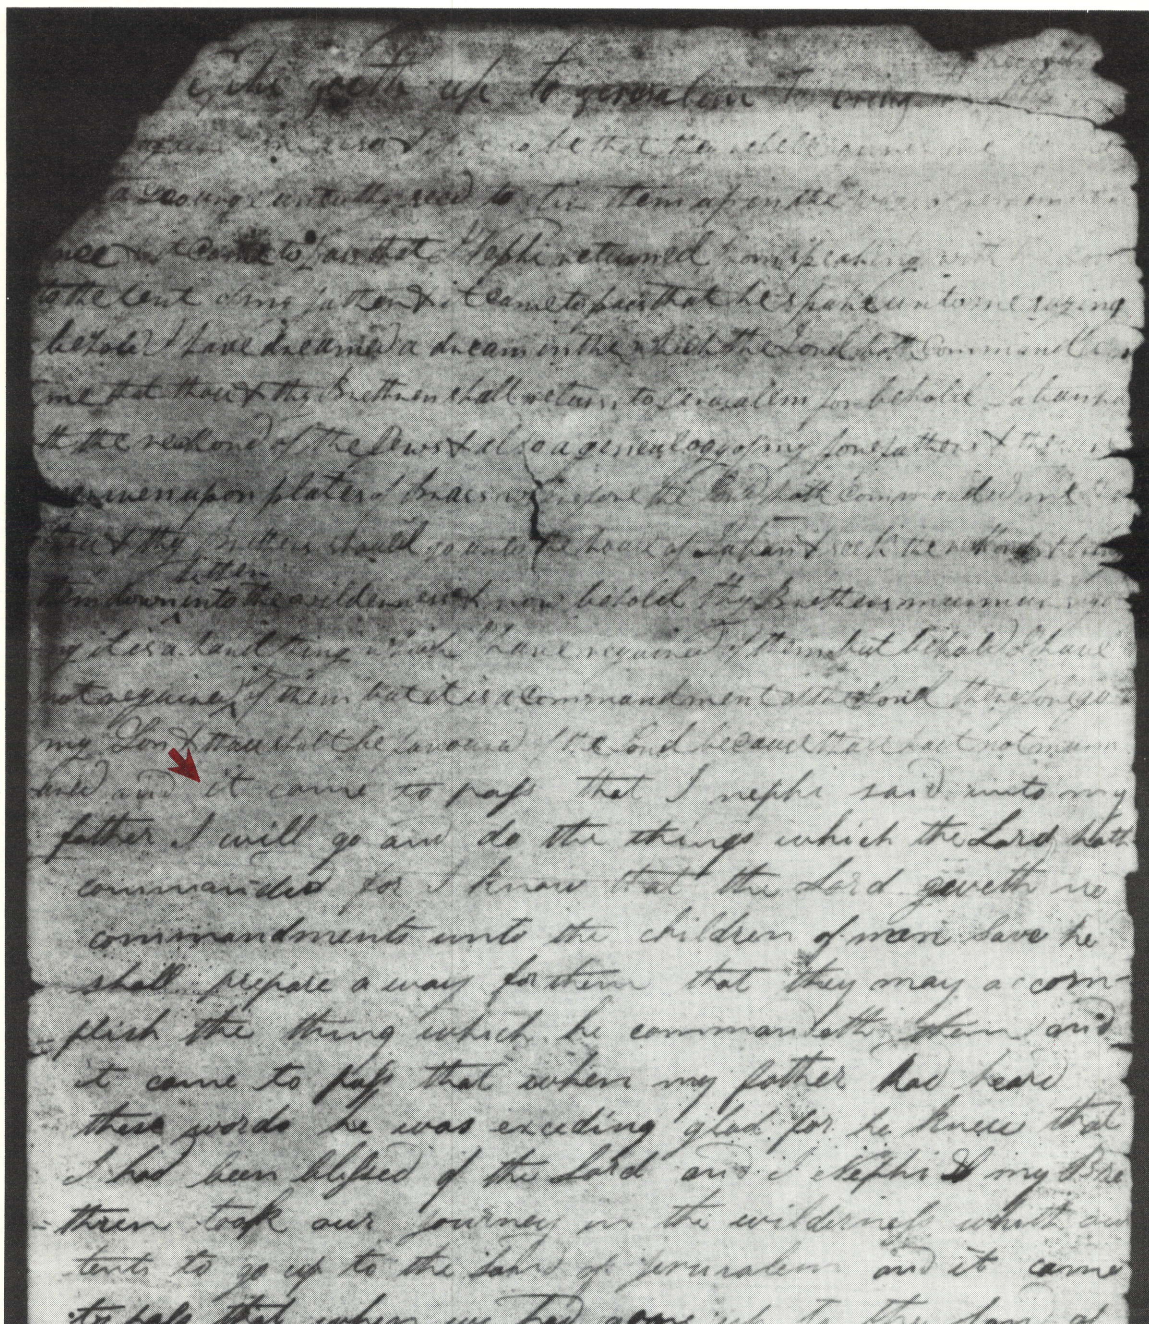 goeth up to jerusalem to bring
be that they rebell against me
a scourge unto thy seed to stir them up in the ways of remembra
nce & it came to pass that I Nephi returned from speaking with the Lord
to the tent of my father & it came to pass that he spake unto me saying
behold I have dreamed a dream in the which the Lord hath commanded
me that thou & thy Brethren shall return to Jerusalem for behold Laban ha
th the reckord of the Jews & also a genealogy of my forefathers & they are
upon plates of brass wherefore the Lord hath commanded me
thou & thy brothers should go unto the house of Laban & seek the reckords & bring
them down hither into the wilderness & now behold thy Brethers murmur
it is a hard thing which I have required of them but behold I have
not required it of them but it is a commandment of the Lord therefore go
my Son & thou shalt be favoured of the Lord because thou hast not murm
and it came to pass that I nephi said unto my
father I will go and do the things which the Lord hath
commanded for I know that the Lord geveth no
commandments unto the children of men save he
shall prepare a way for them that they may accom-
plish the thing which he commandeth them and
it came to pass that when my father had heard
these words he was exceding glad for he knew that
I had been blessed of the Lord and I Nephi & my Bre
=thren took our journey in the wilderness with our
tents to go up to the Land of jerusalem and it came
to pass that when we had gone up to the Land of